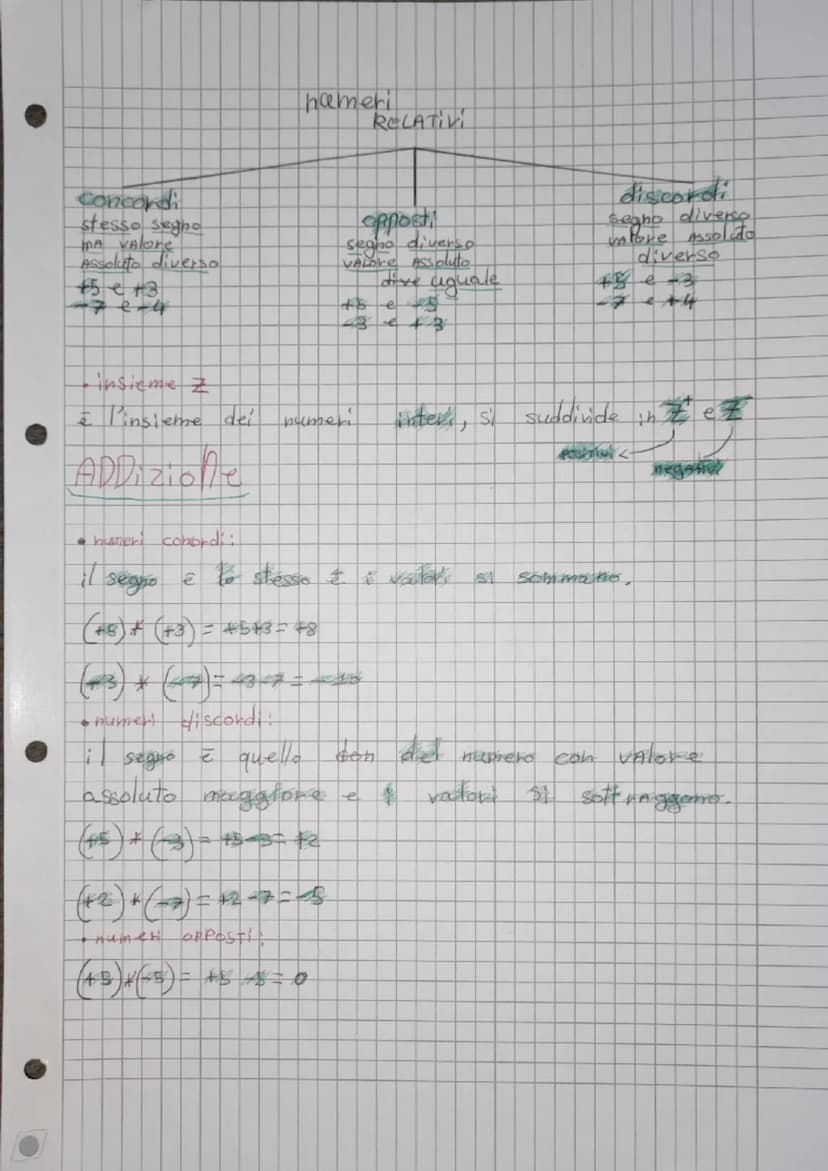 numeri
RELATIVI
concordi
stesso segno
ma valore
Assoluto diverso
+5 e +3
-7 e -4
opposti
segno diverso
VALORE ASSOLUTO
uguale
+5 e -5
-3 e +3
discordi
segno diverso
valore Assoluto
diverso
+5 e -3
-7 e +4
• insieme Z
È l'insieme dei numeri interi, si suddivide in Z⁺ e Z⁻
positivi
negativi
ADDizione
• numeri conordi:
il segno è lo stesso e i valori si sommano.
(+3) = +5+3 = +8
• numeri discordi:
il segno è quello del numero con valore
assoluto maggiore e i valori si sottraggono.
(+5) + (-3) = +5-3 = +2
(+2) + (-7) = +2-7 = -5
• numeri opposti:
(+5)+(-5) = +5 -5 = 0